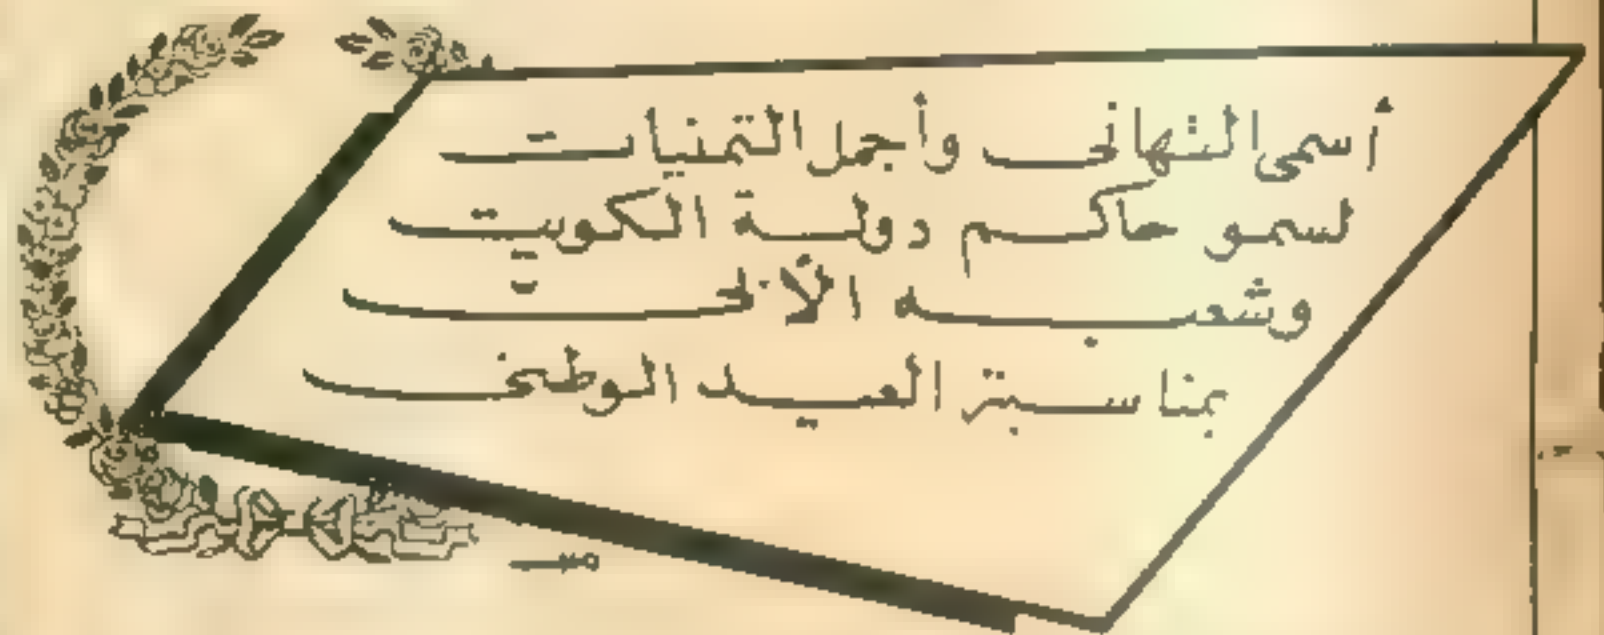 أسمى التهاني وأجمل التمنيات
لسمو حاكم دولة الكويت
وشعبه الأبيّ
بمناسبة العيد الوطني